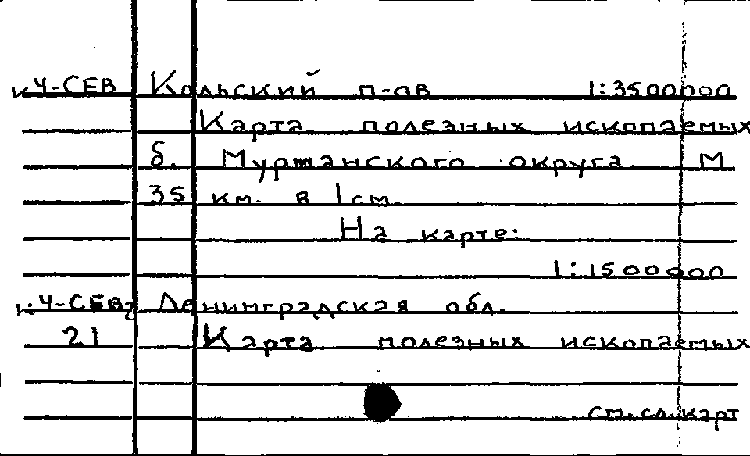 к Ч-СЕВ Кольский п-ов 1:3500000
Карта полезных ископаемых
б. Мурманского округа М
35 км. в 1 см.
На карте:
1:1500000
к. Ч-СЕВ, Ленинградская обл.
21 Карта полезных ископаемых
см. сл. карт